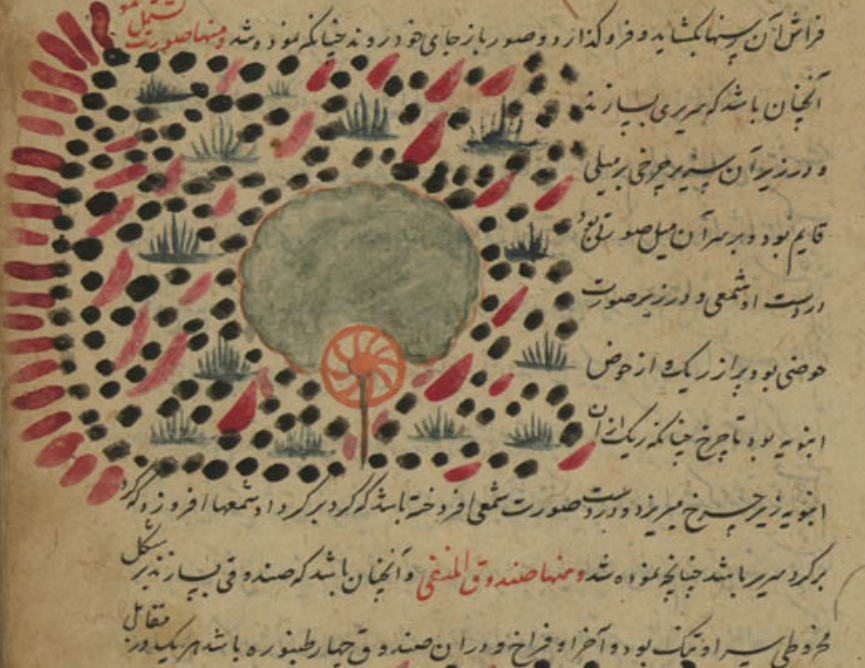 فراش آن رسنها بکشاید و فرو کذارد و صور باز جای خود روند چنانکه نموده شد ومنها صورت
آنچنان باشد که سریری بسازند
و در زیر آن سریر چرخی بر میلی
قایم بود و بر سر آن میل صورتی بود
در دست او شمعی و در زیر صورت
حوضی بود پر از ریک و از حوض
انبوبه بود تا چرخ چنانکه ریک ازان
انبوبه زیر چرخ میریزد و در دست صورت شمعی افروخته باشد که کرد بر کرد او شمعها افروزد و کرد
بر کرد سریر باشد چنانچه نموده شد ومنها صندوق وآنچنان باشد که صندوقی بسازند بر شکل
مخروطی سر او تنک بود و آخر او فراخ و در ان صندوق چهار طنبوره باشد هر یک در مقابل